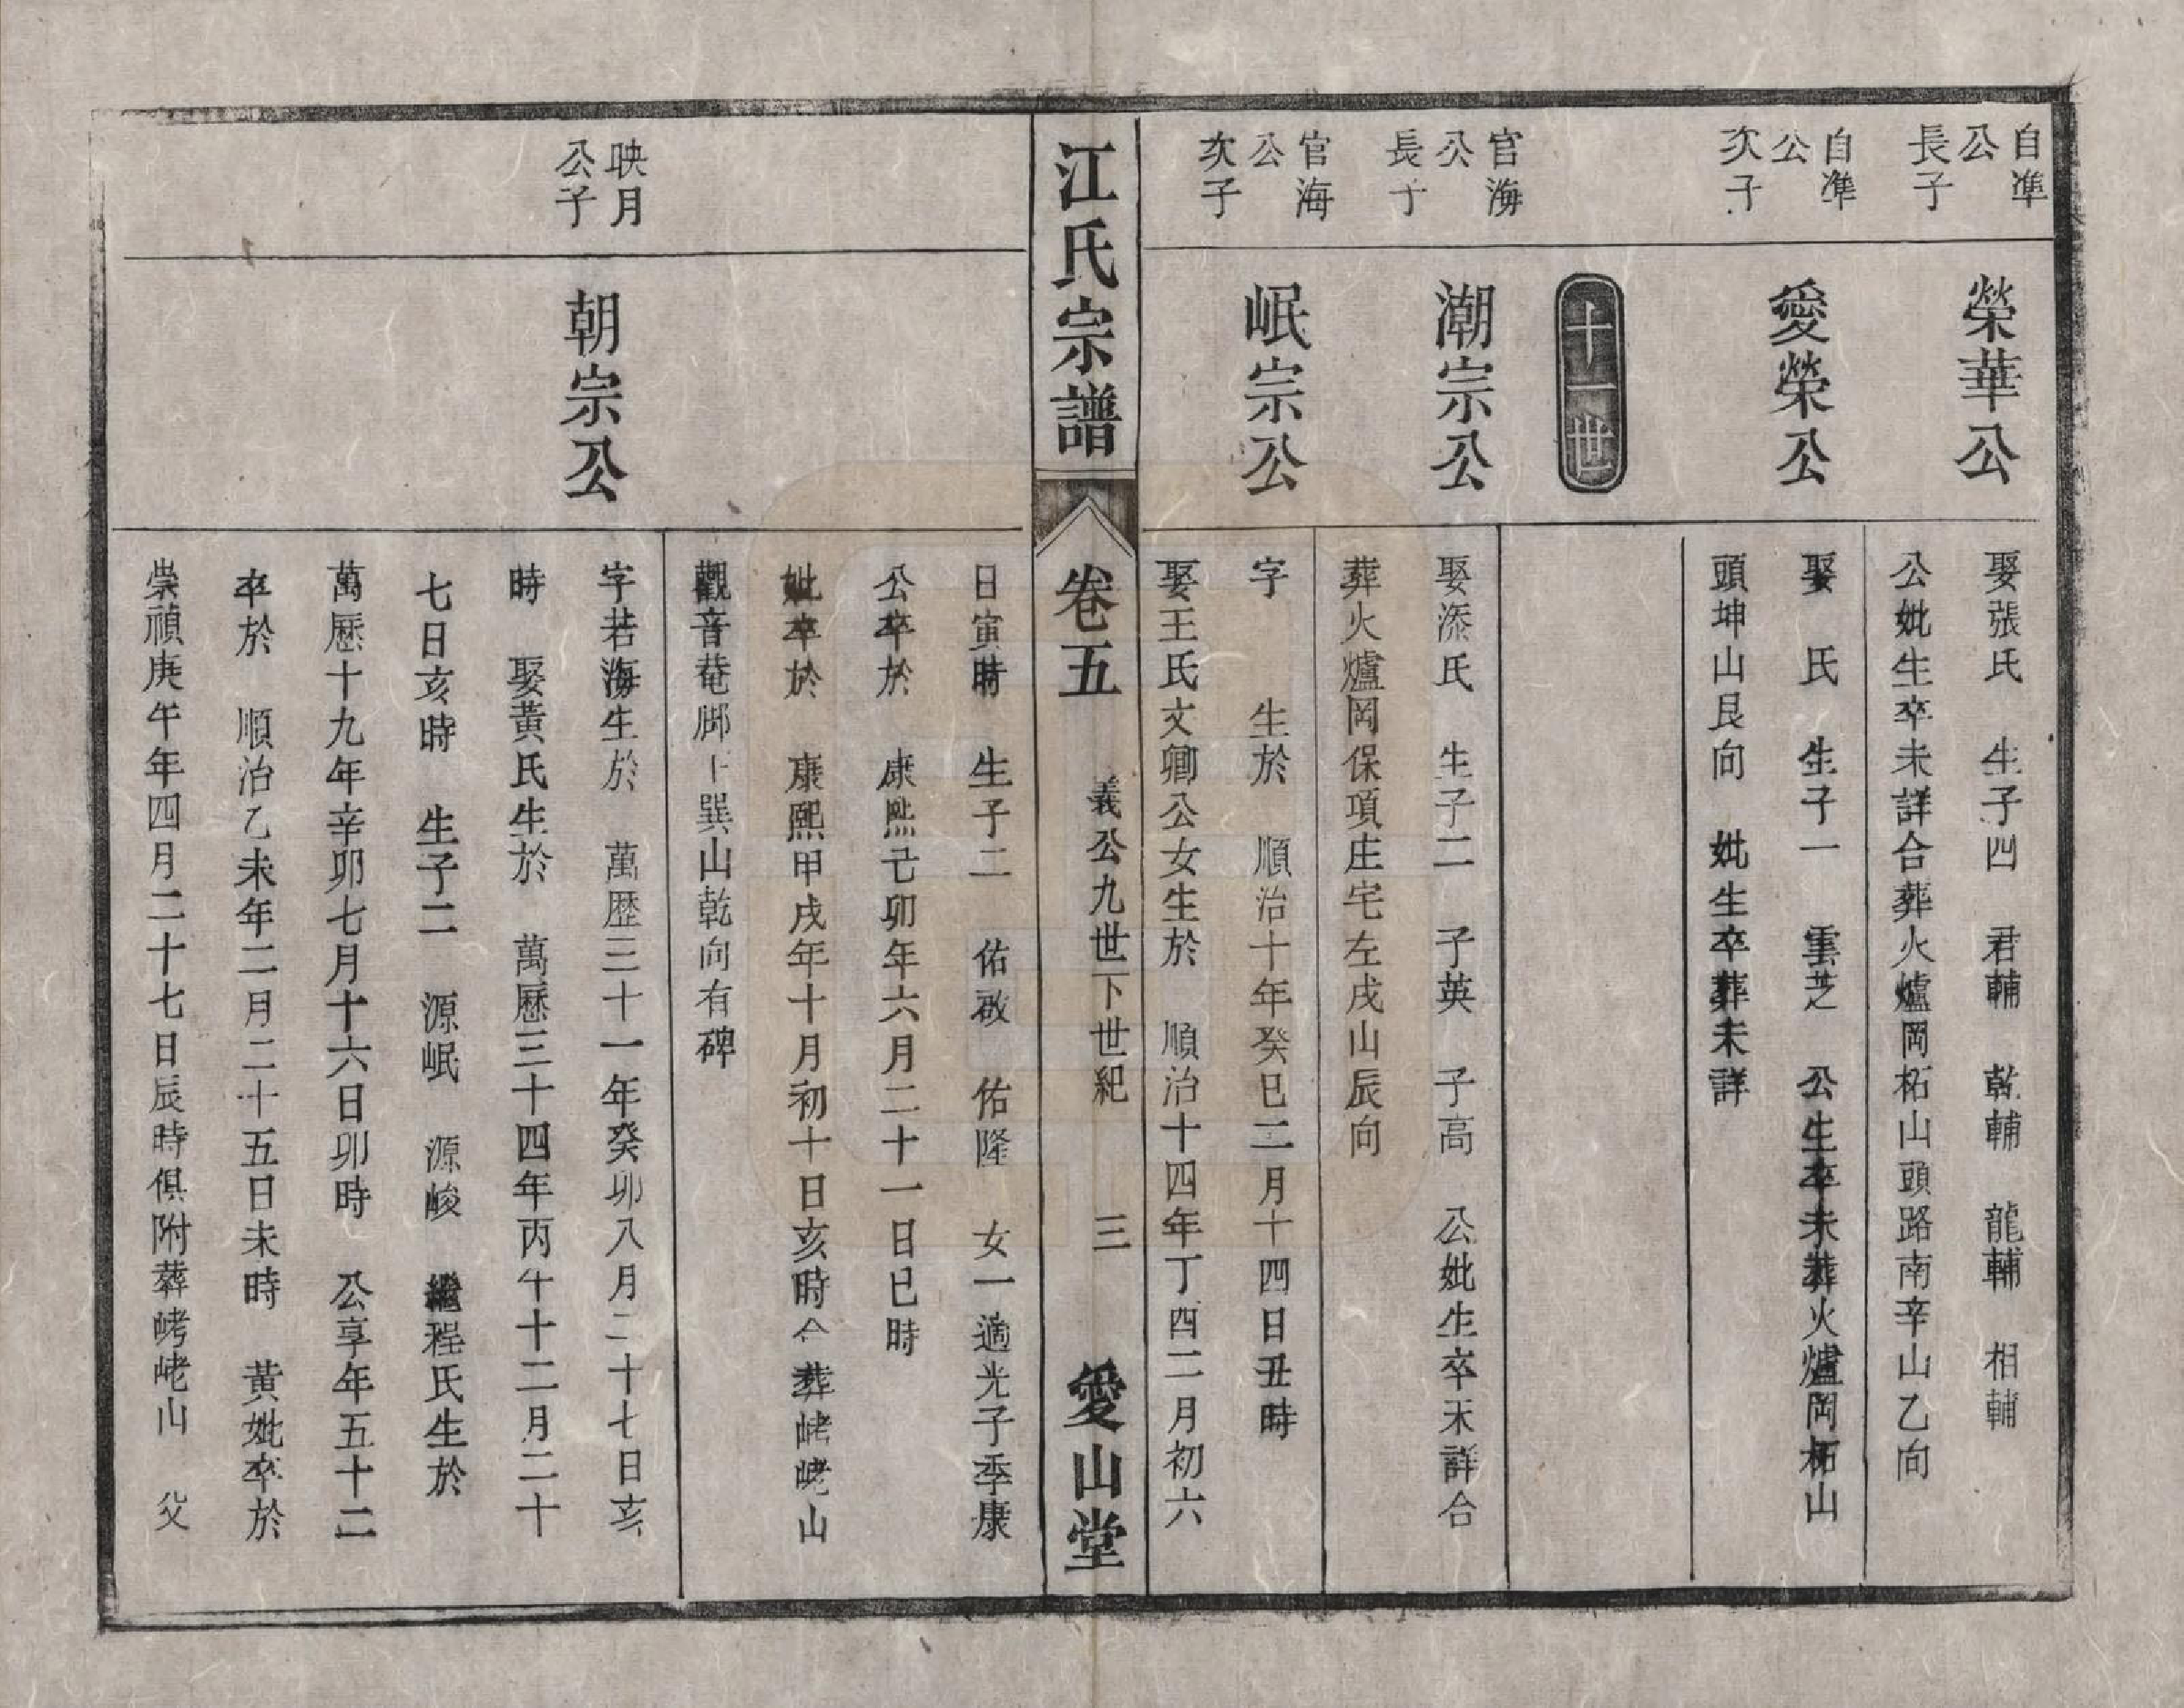 自準
公
長子
榮華公
娶張氏　生子四　君輔　乾輔　龍輔　相輔
公妣生卒未詳合葬火爐岡柘山頭路南辛山乙向
自準
公
次子
愛榮公
娶　氏　生子一　雲芝　公生卒未葬火爐岡柘山
頭坤山艮向　妣生卒葬未詳
十一世
官海
公
長子
潮宗公
娶添氏　生子二　子英　子高　公妣生卒未詳合
葬火爐岡保項庄宅左戌山辰向
官海
公
次子
岷宗公
字　　生於　順治十年癸巳二月十四日丑時
娶王氏文卿公女生於　順治十四年丁酉二月初六
江氏宗譜　卷五　義公九世下世紀　三　愛山堂
日寅時　生子二　佑啟　佑隆　女一適光子季康
公卒於　康熙己卯年六月二十一日巳時
妣卒於　康熙甲戌年十月初十日亥時合葬峔峔山
觀音菴脚下巽山乾向有碑
映月
公子
朝宗公
字若海生於　萬歷三十一年癸卯八月二十七日亥
時　娶黃氏生於　萬歷三十四年丙午十二月二十
七日亥時　生子二　源岷　源峻　繼程氏生於
萬歷十九年辛卯七月十六日卯時　公享年五十二
卒於　順治乙未年二月二十五日未時　黃妣卒於
崇禎庚午年四月二十七日辰時俱附葬峔峔山　父